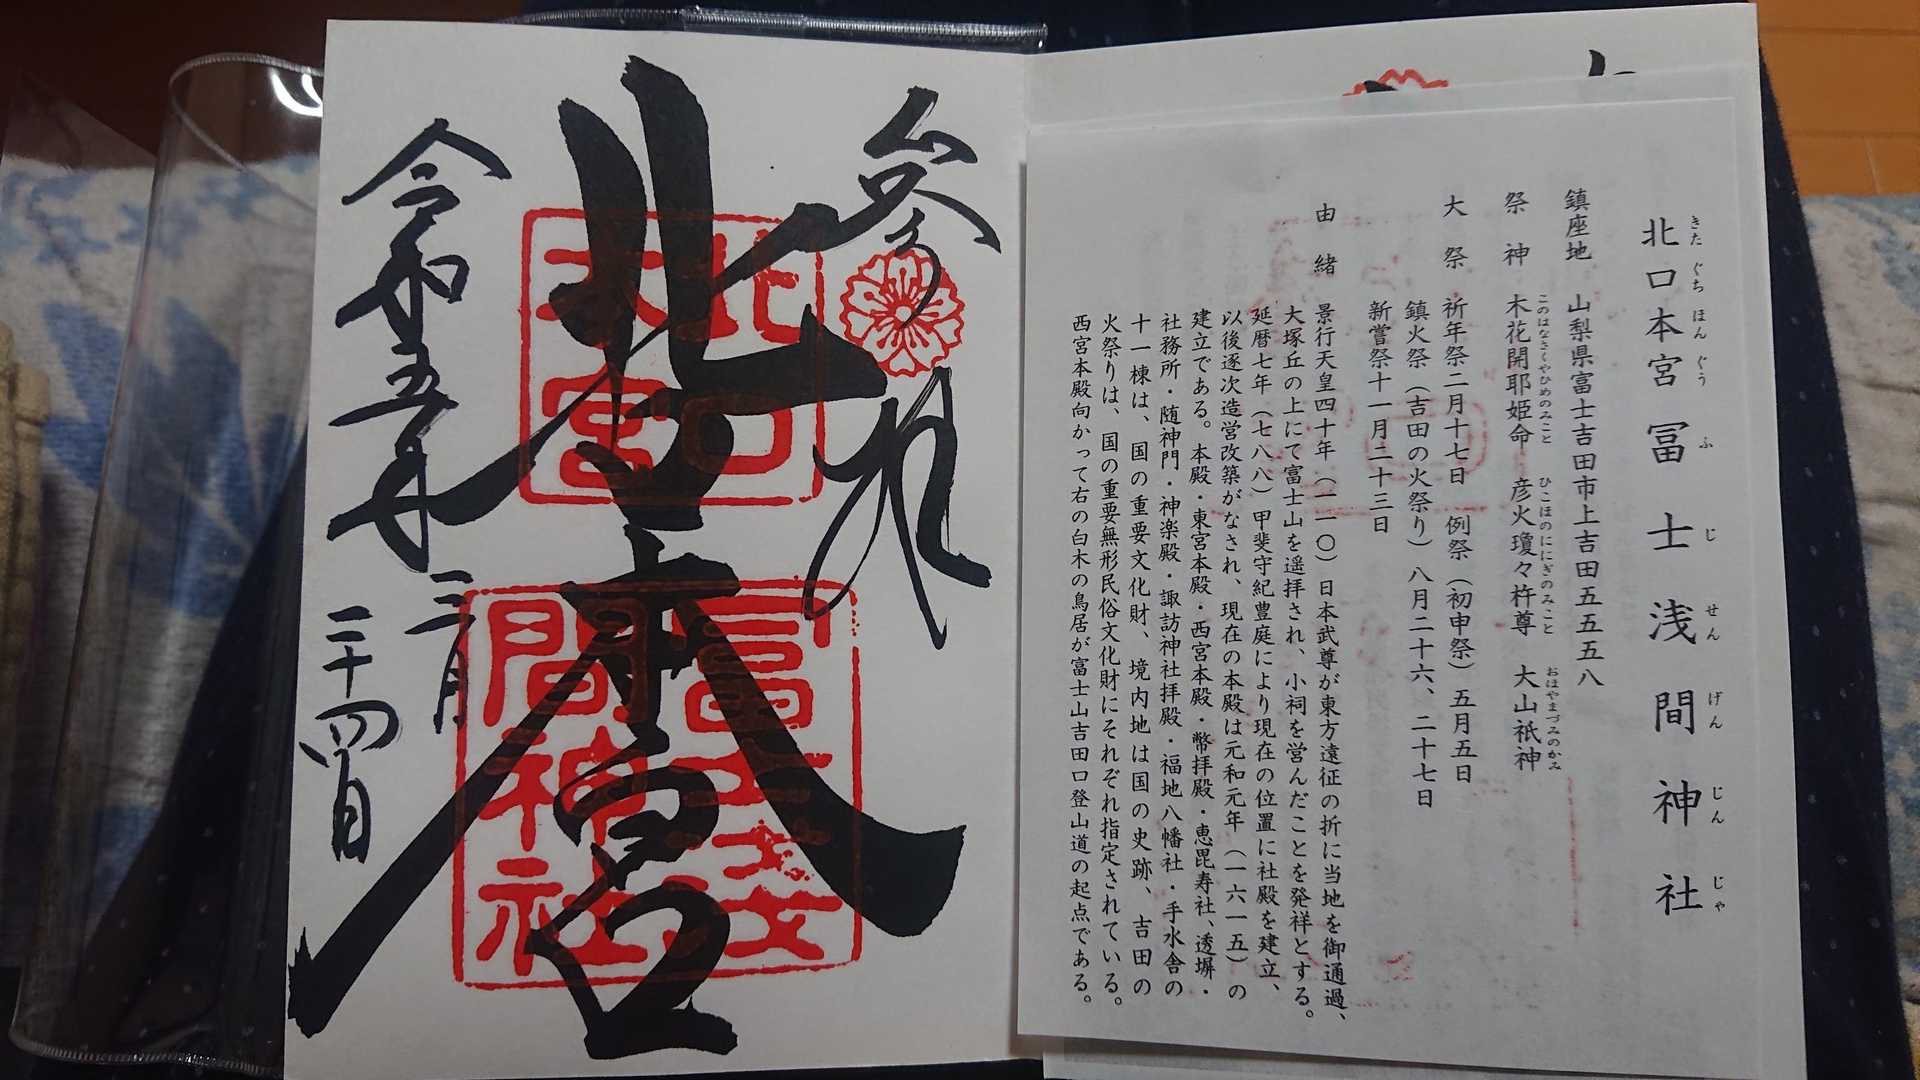 きたぐちほんぐうふじせんげんじんじゃ
北口本宮冨士浅間神社
鎮座地 山梨県富士吉田市上吉田五五五八
このはなさくやひめのみこと ひこほのににぎのみこと おほやまづみのかみ
祭神 木花開耶姫命 彦火瓊々杵尊 大山祇神
大祭 祈年祭二月十七日 例祭（初申祭）五月五日
鎮火祭（吉田の火祭り）八月二十六、二十七日
新嘗祭十一月二十三日
由緒 景行天皇四十年（一一〇）日本武尊が東方遠征の折に当地を御通過、
大塚丘の上にて富士山を遥拝され、小祠を営んだことを発祥とする。
延暦七年（七八八）甲斐守紀豊庭により現在の位置に社殿を建立、
以後逐次造営改築がなされ、現在の本殿は元和元年（一六一五）の
建立である。本殿・東宮本殿・西宮本殿・幣拝殿・恵毘寿社、透塀・
社務所・随神門・神楽殿・諏訪神社拝殿・福地八幡社・手水舎の
十一棟は、国の重要文化財、境内地は国の史跡、吉田の
火祭りは、国の重要無形民俗文化財にそれぞれ指定されている。
西宮本殿向かって右の白木の鳥居が富士山吉田口登山道の起点である。
参拝
北口本宮
北口
本宮
冨士浅
間神社
令和五年
三月
二十四日